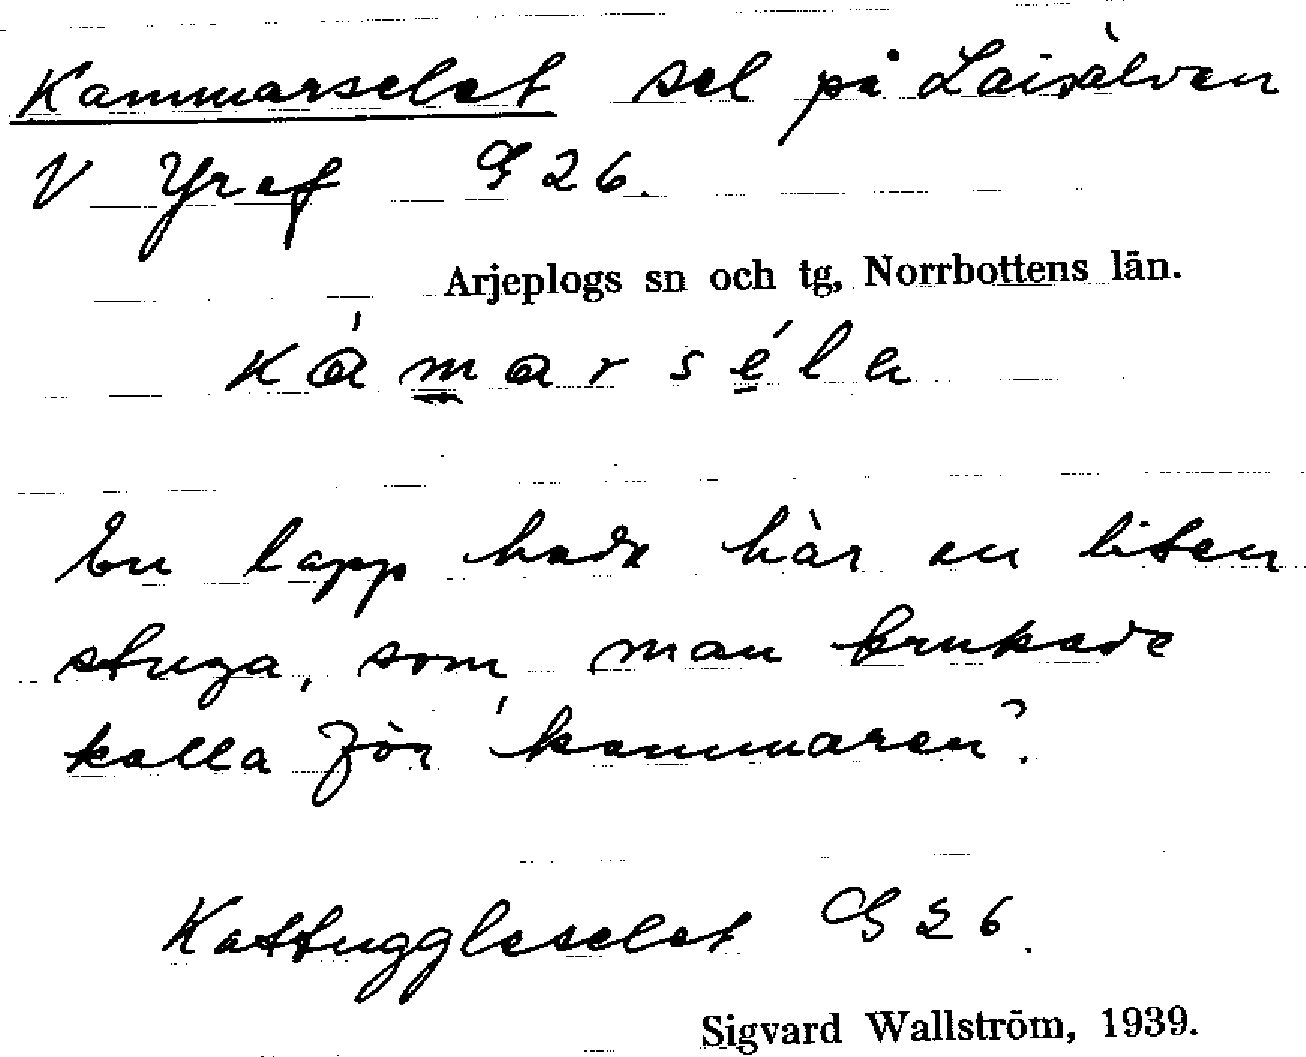 Kammarselet sel på Laisälven
V Yraf G 26.
Arjeplogs sn och tg, Norrbottens län.
kámarséla
En lapp hade här en liten
stuga, som man brukade
kalla för 'kammaren'.
Kattuggleselet G 26.
Sigvard Wallström, 1939.